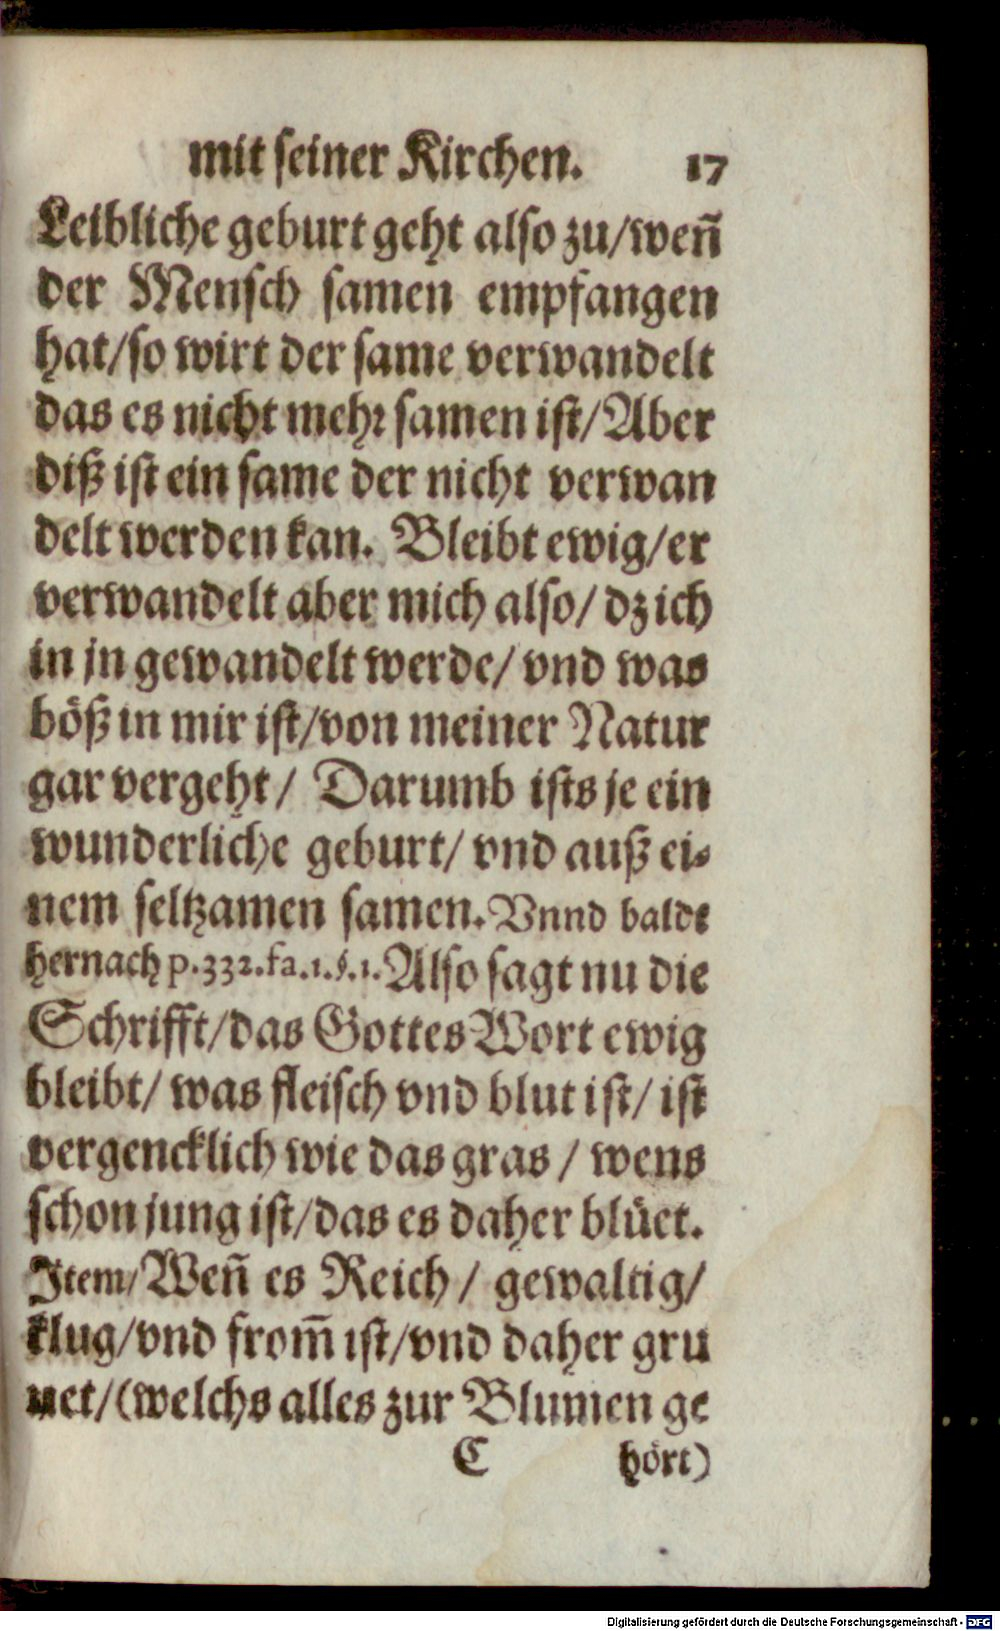 mit seiner Kirchen. 17
Leibliche geburt geht also zu/wen̄
der Mensch samen empfangen
hat/so wirt der same verwandelt
das es nicht mehr samen ist/Aber
diß ist ein same der nicht verwan
delt werden kan. Bleibt ewig/er
verwandelt aber mich also/ dz ich
in jn gewandelt werde/ vnd was
böß in mir ist/von meiner Natur
gar vergeht/ Darumb ists je ein
wunderliche geburt/ vnd auß ei-
nem seltzamen samen. Vnnd balde
hernach p.332.fa.1.§.1. Also sagt nu die
Schrifft/das Gottes Wort ewig
bleibt/ was fleisch vnd blut ist/ ist
vergencklich wie das gras / wens
schon jung ist/das es daher blüet.
Item/Wen̄ es Reich / gewaltig/
klug/vnd from̄ ist/vnd daher gru
net/(welchs alles zur Blumen ge
C hört)
Digitalisierung gefördert durch die Deutsche Forschungsgemeinschaft - DFG